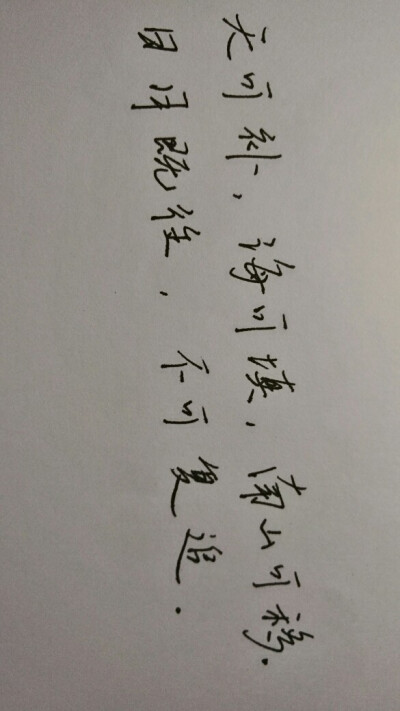 天可补，海可填，南山可移.
日月既往，不可复追.